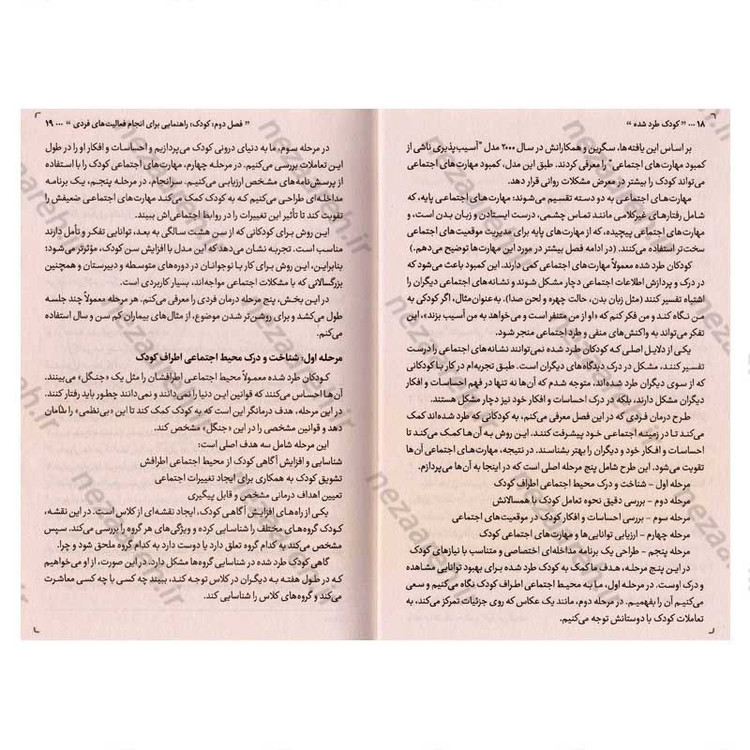 ۱۸ ... " کودک طرد شده "
بر اساس این یافته‌ها، سگرین و همکارانش در سال ۲۰۰۰ مدل "آسیب‌پذیری ناشی از
کمبود مهارت‌های اجتماعی" را معرفی کردند. طبق این مدل، کمبود مهارت‌های اجتماعی
می‌تواند کودک را بیشتر در معرض مشکلات روانی قرار دهد.
مهارت‌های اجتماعی به دو دسته تقسیم می‌شوند: مهارت‌های اجتماعی پایه، که
شامل رفتارهای غیرکلامی مانند تماس چشمی، درست ایستادن و زبان بدن است، و
مهارت‌های اجتماعی پیچیده، که از مهارت‌های پایه برای مدیریت موقعیت‌های اجتماعی
سخت‌تر استفاده می‌کنند. (در ادامه فصل بیشتر در مورد این مهارت‌ها توضیح می‌دهم.)
کودکان طرد شده معمولاً مهارت‌های اجتماعی کمی دارند. این کمبود باعث می‌شود که
در درک و پردازش اطلاعات اجتماعی دچار مشکل شوند و نشانه‌های اجتماعی دیگران را
اشتباه تفسیر کنند (مثل زبان بدن، حالت چهره و لحن صدا). به‌عنوان‌مثال، اگر کودکی به
من نگاه کند و من فکر کنم که «او از من متنفر است و می‌خواهد به من آسیب بزند»، این
تفکر می‌تواند به واکنش‌های منفی و طرد اجتماعی منجر شود.
یکی از دلایل اصلی که کودکان طرد شده نمی‌توانند نشانه‌های اجتماعی را درست
تفسیر کنند، مشکل در درک دیدگاه‌های دیگران است. طبق تجربه‌ام در کار با کودکانی
که از سوی دیگران طرد شده‌اند، متوجه شدم که آن‌ها نه تنها در فهم احساسات و افکار
دیگران مشکل دارند، بلکه در درک احساسات و افکار خود نیز دچار مشکل هستند.
طرح درمان فردی که در این فصل معرفی می‌کنم، به کودکانی که طرد شده‌اند کمک
می‌کند تا در زمینه اجتماعی خود پیشرفت کنند. این روش به آن‌ها کمک می‌کند تا
احساسات و افکار خود و دیگران را بهتر بشناسند. در نتیجه، مهارت‌های اجتماعی آن‌ها
تقویت می‌شود. این طرح شامل پنج مرحله اصلی است که در اینجا به آن‌ها می‌پردازیم.
مرحله اول - شناخت و درک محیط اجتماعی اطراف کودک
مرحله دوم - بررسی دقیق نحوه تعامل کودک با همسالانش
مرحله سوم - بررسی احساسات و افکار کودک در موقعیت‌های اجتماعی
مرحله چهارم - ارزیابی توانایی‌ها و مهارت‌های اجتماعی کودک
مرحله پنجم - طراحی یک برنامه مداخله‌ای اختصاصی و متناسب با نیازهای کودک
در این پنج مرحله، هدف ما کمک به کودک طرد شده برای بهبود توانایی مشاهده
و درک اوست. در مرحله اول، ما به محیط اجتماعی اطراف کودک نگاه می‌کنیم و سعی
می‌کنیم آن را بفهمیم. در مرحله دوم، مانند یک عکاس که روی جزئیات تمرکز می‌کند، به
تعاملات کودک با دوستانش توجه می‌کنیم.
" فصل دوم: کودک: راهنمایی برای انجام فعالیت‌های فردی " ... ۱۹
در مرحله سوم، ما به دنیای درونی کودک می‌پردازیم و احساسات و افکار او را در طول
این تعاملات بررسی می‌کنیم. در مرحله چهارم، مهارت‌های اجتماعی کودک را با استفاده
از پرسش‌نامه‌های مشخص ارزیابی می‌کنیم. سرانجام، در مرحله پنجم، یک برنامه
مداخله‌ای طراحی می‌کنیم که به کودک کمک می‌کند مهارت‌های اجتماعی ضعیفش را
تقویت کند تا تأثیر این تغییرات را در روابط اجتماعی‌اش ببیند.
این روش برای کودکانی که از سن هشت سالگی به بعد، توانایی تفکر و تأمل دارند
مناسب است. تجربه نشان می‌دهد که این مدل با افزایش سن کودک، مؤثرتر می‌شود؛
بنابراین، این روش برای کار با نوجوانان در دوره‌های متوسطه و دبیرستان و همچنین
بزرگسالانی که با مشکلات اجتماعی مواجه‌اند، بسیار کاربردی است.
در این بخش، پنج مرحله درمان فردی را معرفی می‌کنم. هر مرحله معمولاً چند جلسه
طول می‌کشد و برای روشن‌تر شدن موضوع، از مثال‌های بیماران کم سن و سال استفاده
می‌کنم.
مرحله اول: شناخت و درک محیط اجتماعی اطراف کودک
کودکان طرد شده معمولاً محیط اجتماعی اطرافشان را مثل یک «جنگل» می‌بینند.
آن‌ها احساس می‌کنند که قوانین این دنیا را نمی‌دانند و نمی‌دانند چطور باید رفتار کنند.
در این مرحله، هدف درمانگر این است که به کودک کمک کند تا این «بی‌نظمی» را سامان
دهد و قوانین مشخصی را در این «جنگل» مشخص کند.
این مرحله شامل سه هدف اصلی است:
شناسایی و افزایش آگاهی کودک از محیط اجتماعی اطرافش
تشویق کودک به همکاری برای ایجاد تغییرات اجتماعی
تعیین اهداف درمانی مشخص و قابل پیگیری
یکی از راه‌های افزایش آگاهی کودک، ایجاد نقشه‌ای از کلاس است. در این نقشه،
کودک گروه‌های مختلف را شناسایی کرده و ویژگی‌های هر گروه را بررسی می‌کند. سپس
مشخص می‌کند به کدام گروه تعلق دارد یا دوست دارد به کدام گروه ملحق شود و چرا.
گاهی کودک طرد شده در شناسایی گروه‌ها مشکل دارد. در این صورت، از او می‌خواهیم
که در طول هفته به دیگران در کلاس توجه کند، ببیند چه کسی با چه کسی معاشرت
می‌کند و گروه‌های کلاس را شناسایی کند.
nezaareh.ir